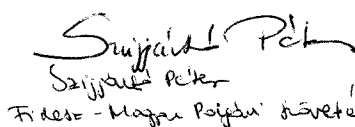 Szijjártó Péter
Szijjártó Péter
Fidesz - Magyar Polgári Szövetség